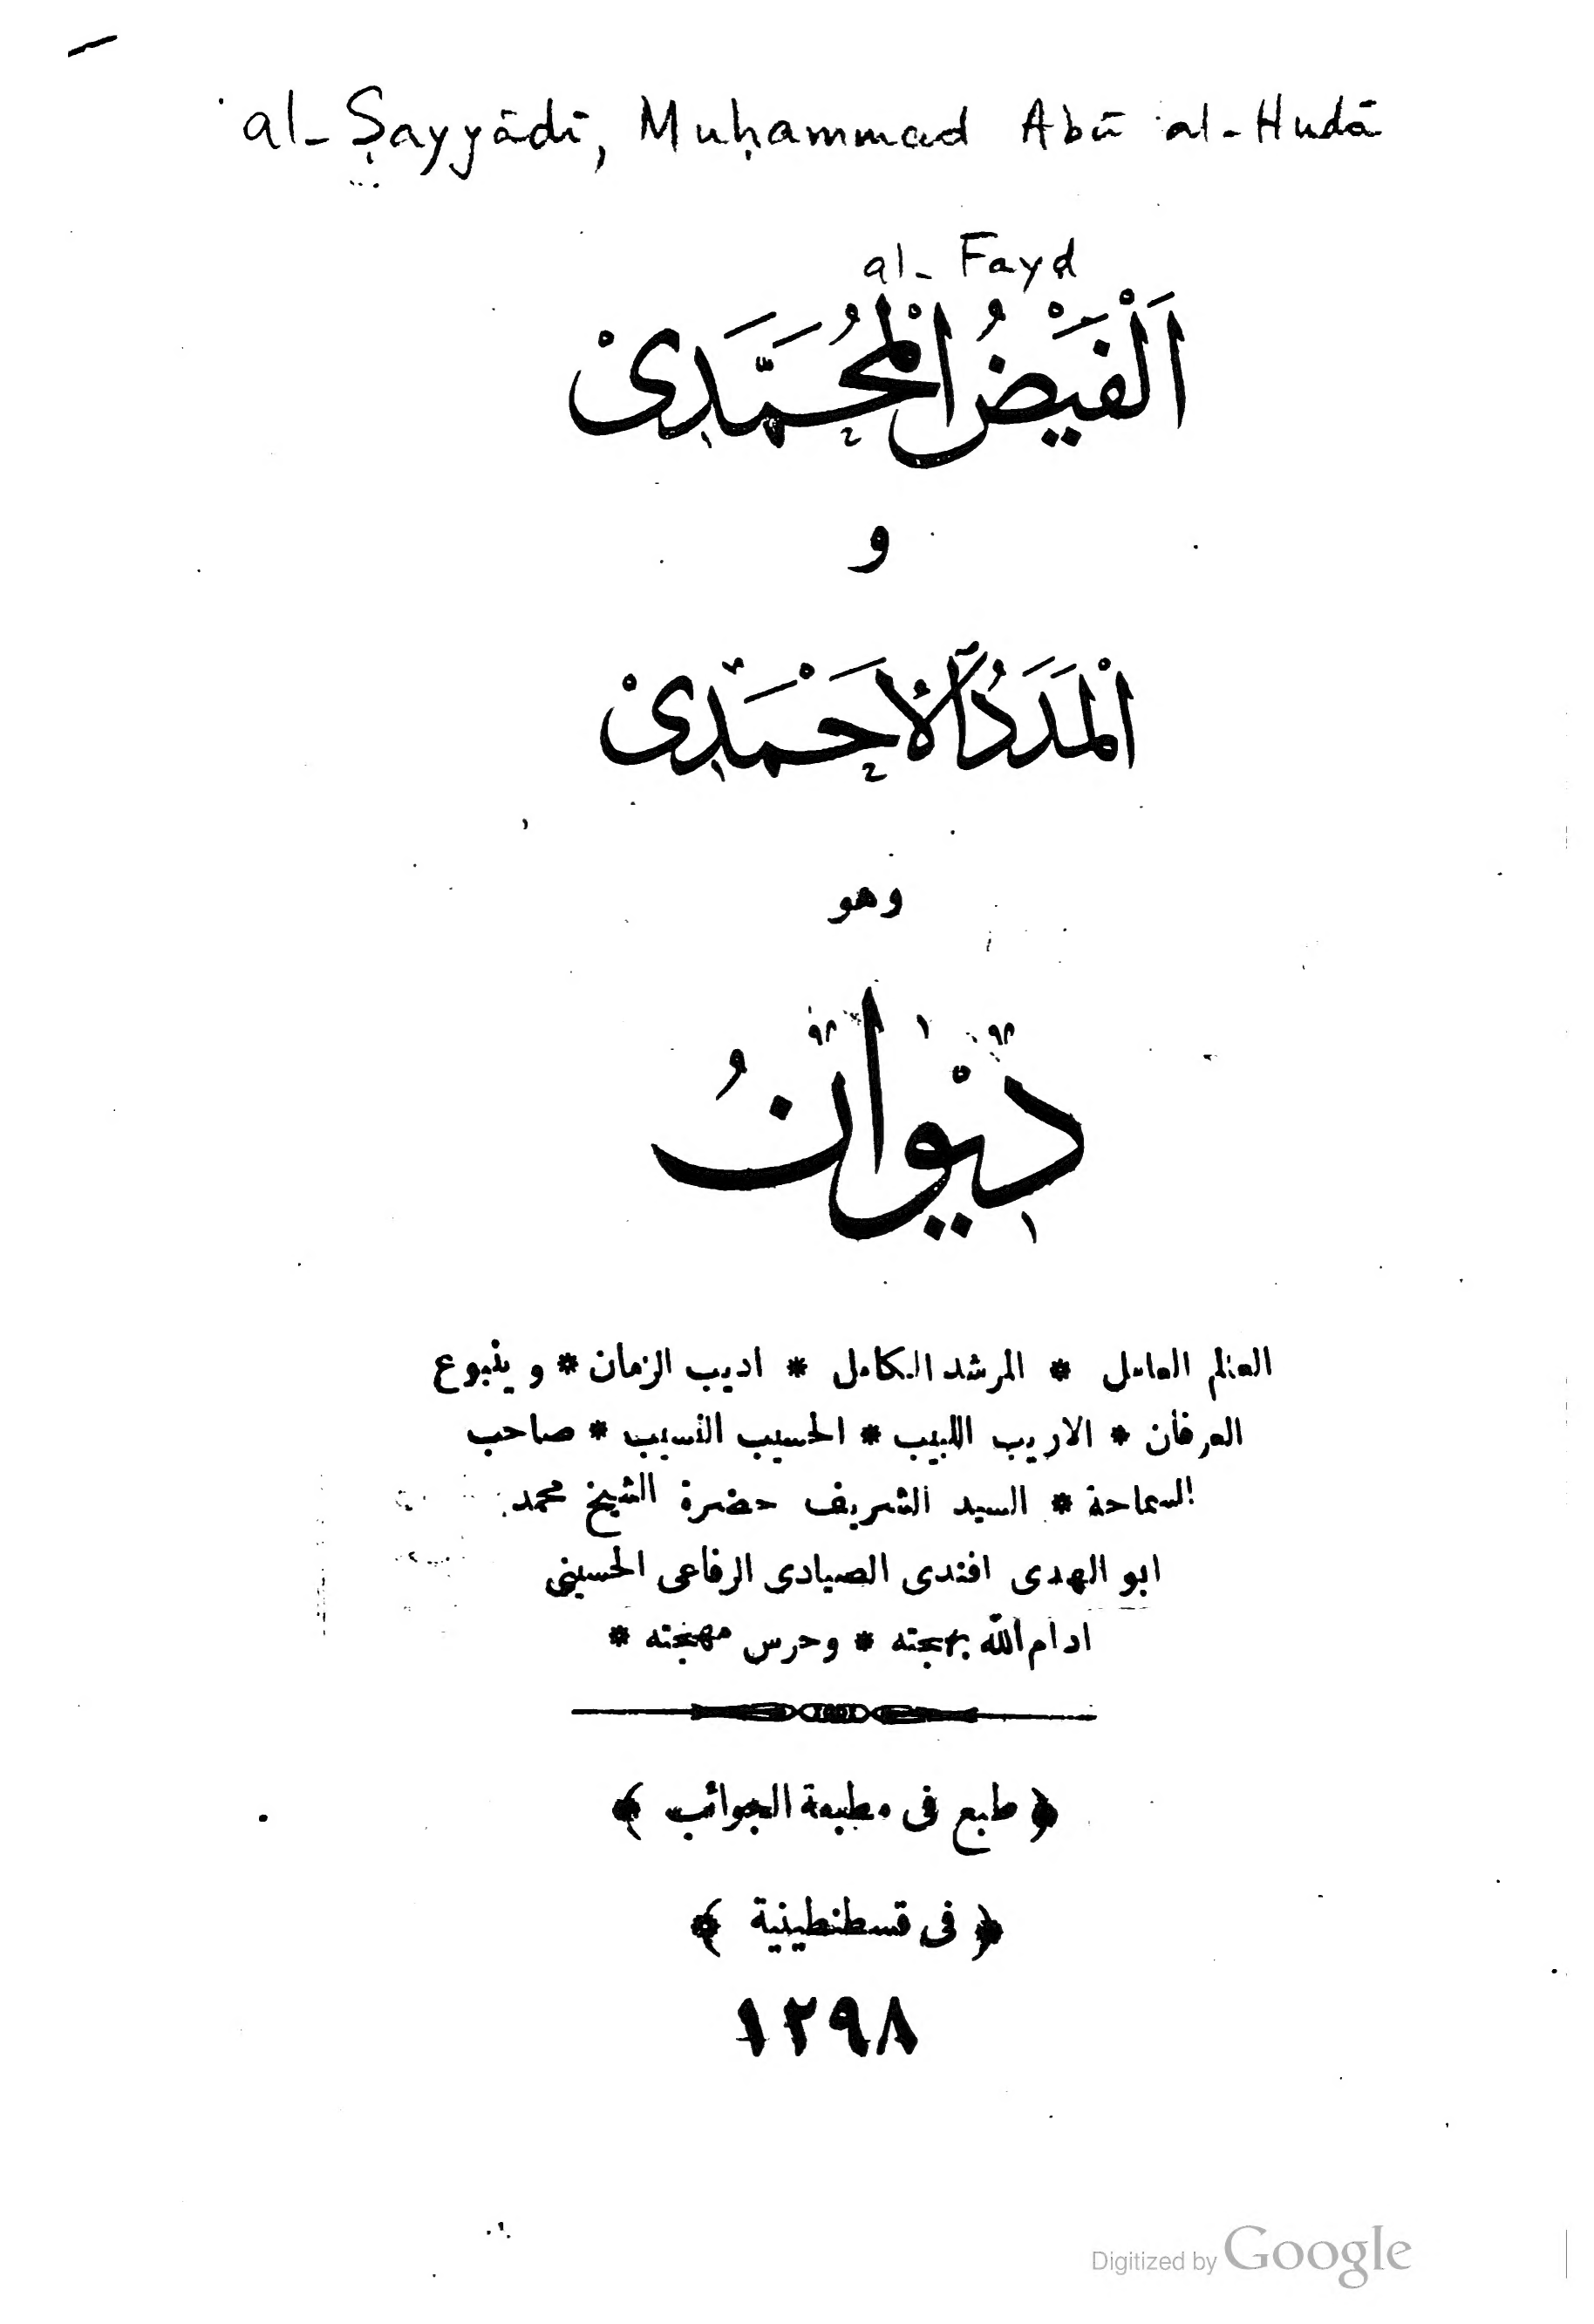 al-Ṣayyādī, Muḥammad Abū al-Hudā
al-Fayḍ
اَلْفَيْضُ الْمُحَمَّدِىْ
و
اَلْمَدَدُ الْاَحْمَدِىْ
وهو
دِيْوَانُ
العالم العامل * المرشد الكامل * اديب الزمان * وينبوع
العرفان * الاريب اللبيب * الحسيب النسيب * صاحب
السماحة * السيد الشريف حضرة الشيخ محمد
ابو الهدى افندى الصيادى الرفاعى الحسينى
ادام الله بهجته * وحرس مهجته *
﴿ طبع فى مطبعة الجوائب ﴾
﴿ فى قسطنطينية ﴾
١٢٩٨
Digitized by Google